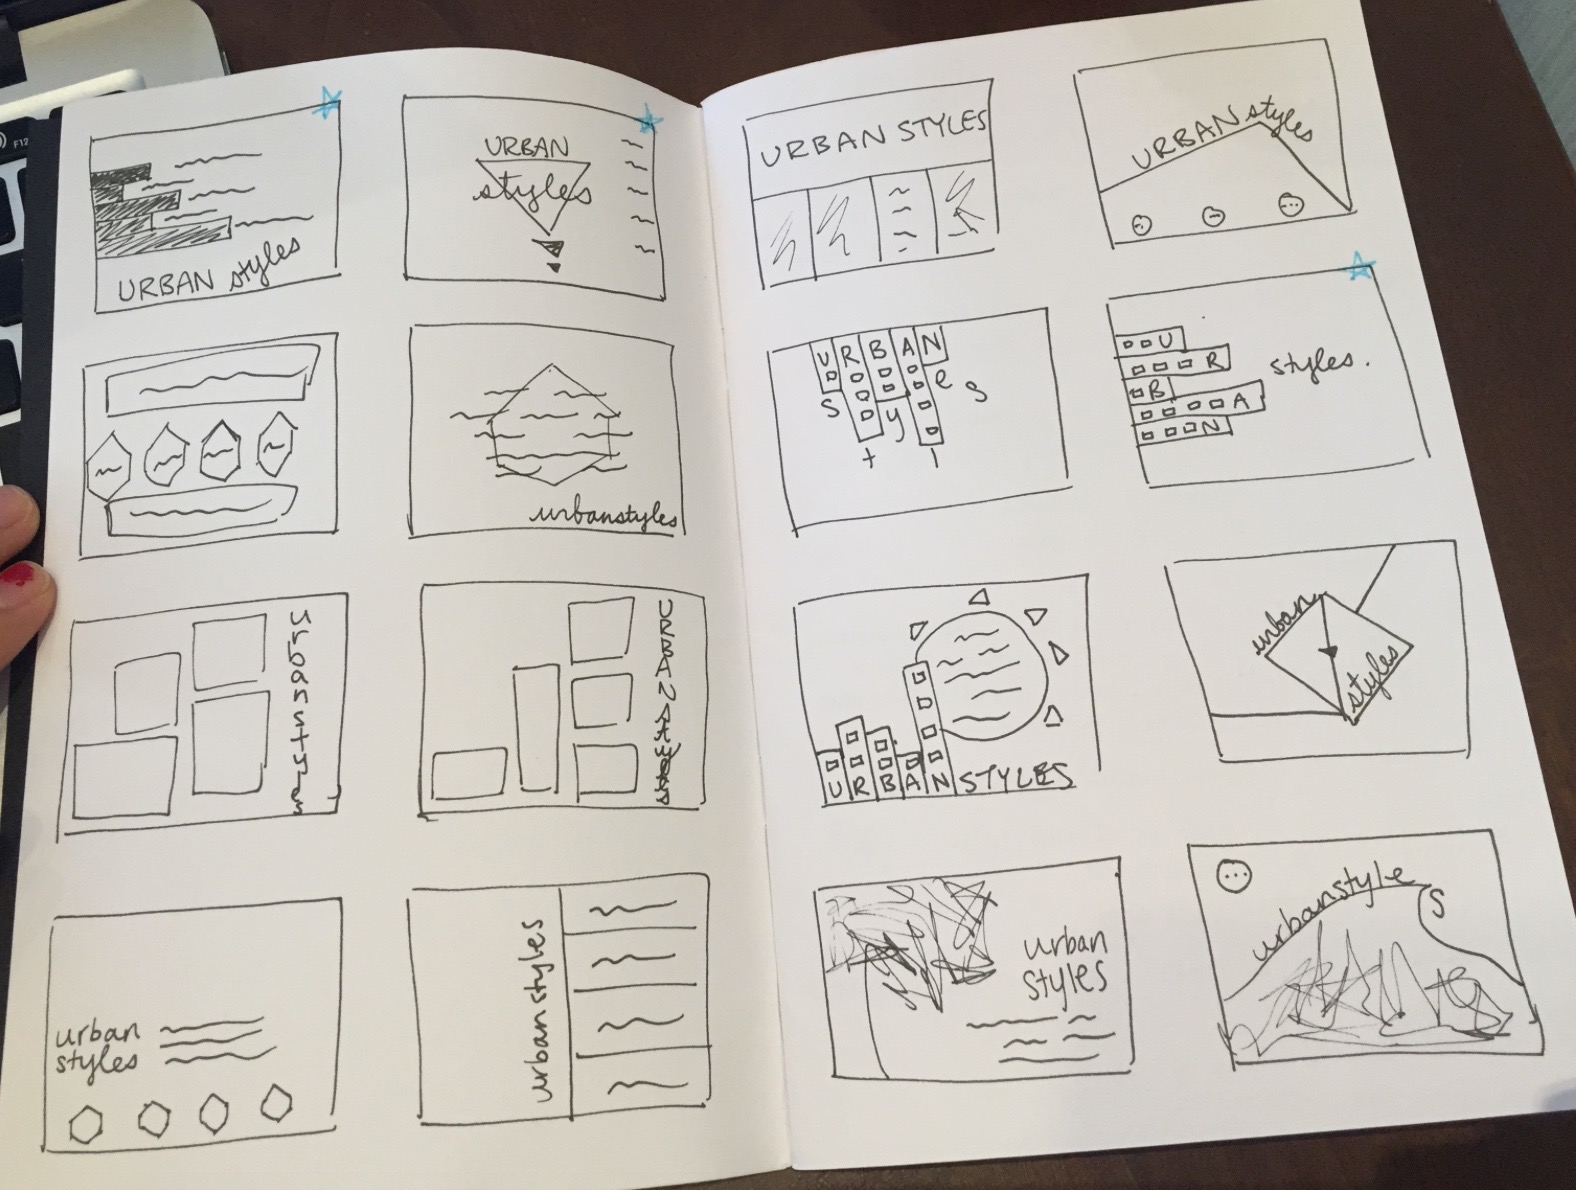 F12
URBAN styles
URBAN
styles
urbanstyles
urbanstyles
URBAN
urban
styles
urban styles
URBAN STYLES
URBAN styles
URBAN
s t y l e s
U
R
B
A
N
styles.
URBAN STYLES
urban
styles
urban
styles
urbanstyles